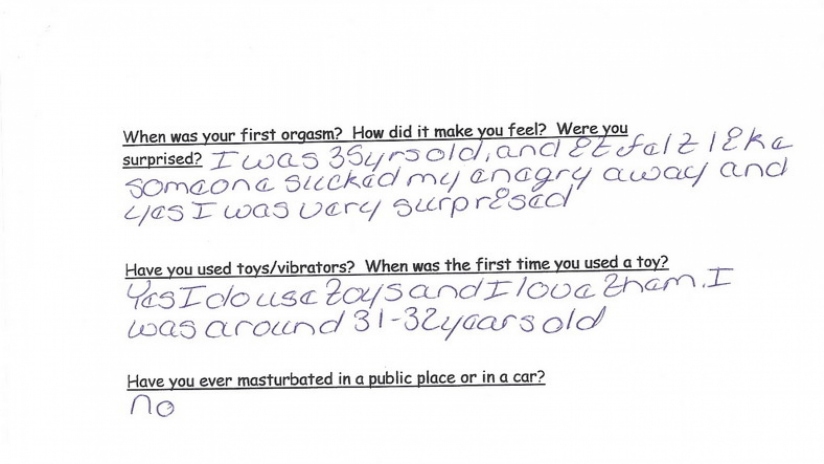 When was your first orgasm? How did it make you feel? Were you
surprised? I was 35yrs old, and it felt like
someone sucked my enagry away and
yes I was very surprised
Have you used toys/vibrators? When was the first time you used a toy?
Yes I do use toys and I love them. I
was around 31-32 years old
Have you ever masturbated in a public place or in a car?
no